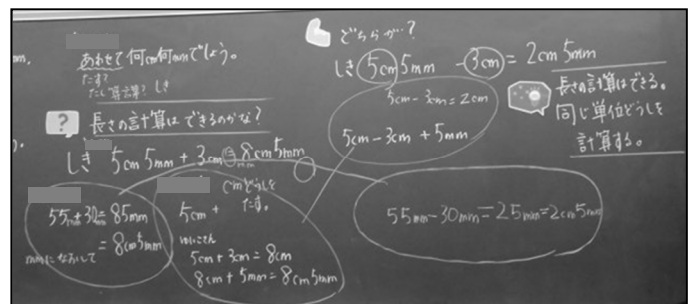 あわせて何cm何mmでしょう。
たす?
たし算?しき
長さの計算はできるのかな?
しき 5cm5mm+3cm=8cm5mm
55mm+30mm=85mm
=8cm5mm
mmになおして
cmどうしを
たす。
5cm+
5cm+3cm=8cm
8cm+5mm=8cm5mm
どちらが…?
しき 5cm5mm-3cm=2cm5mm
5cm-3cm=2cm
5cm-3cm+5mm
55mm-30mm=25mm=2cm5mm
長さの計算はできる。
同じ単位どうしを
計算する。